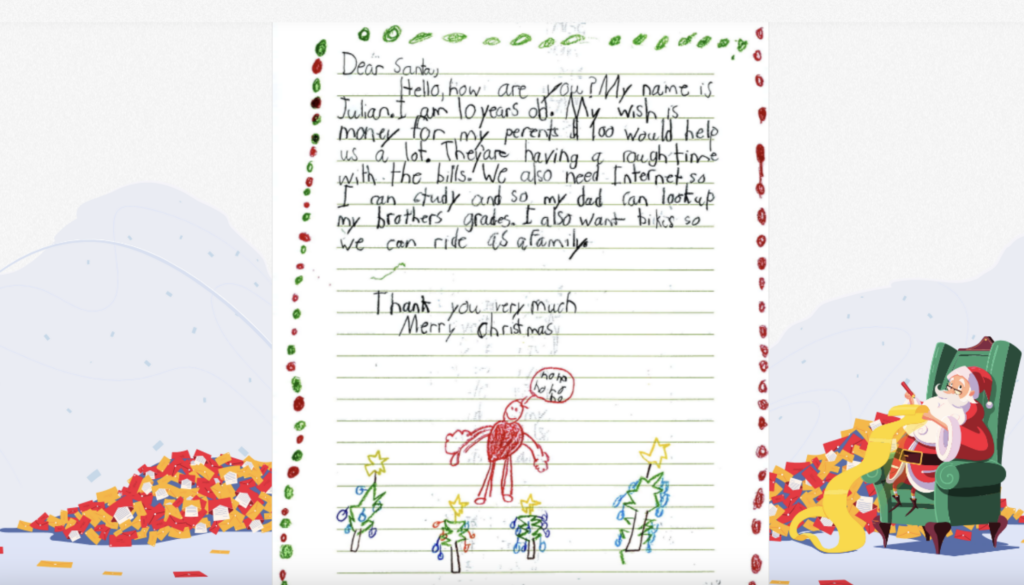 Dear Santa,
Hello, how are you? My name is
Julian. I am 10 years old. My wish is
money for my perents 100 would help
us a lot. They are having a rough time
with the bills. We also need Internet so
I can study and so my dad can look up
my brothers' grades. I also want bikes so
we can ride as a family.
Thank you very much
Merry Christmas
ho ho
ho ho
ho